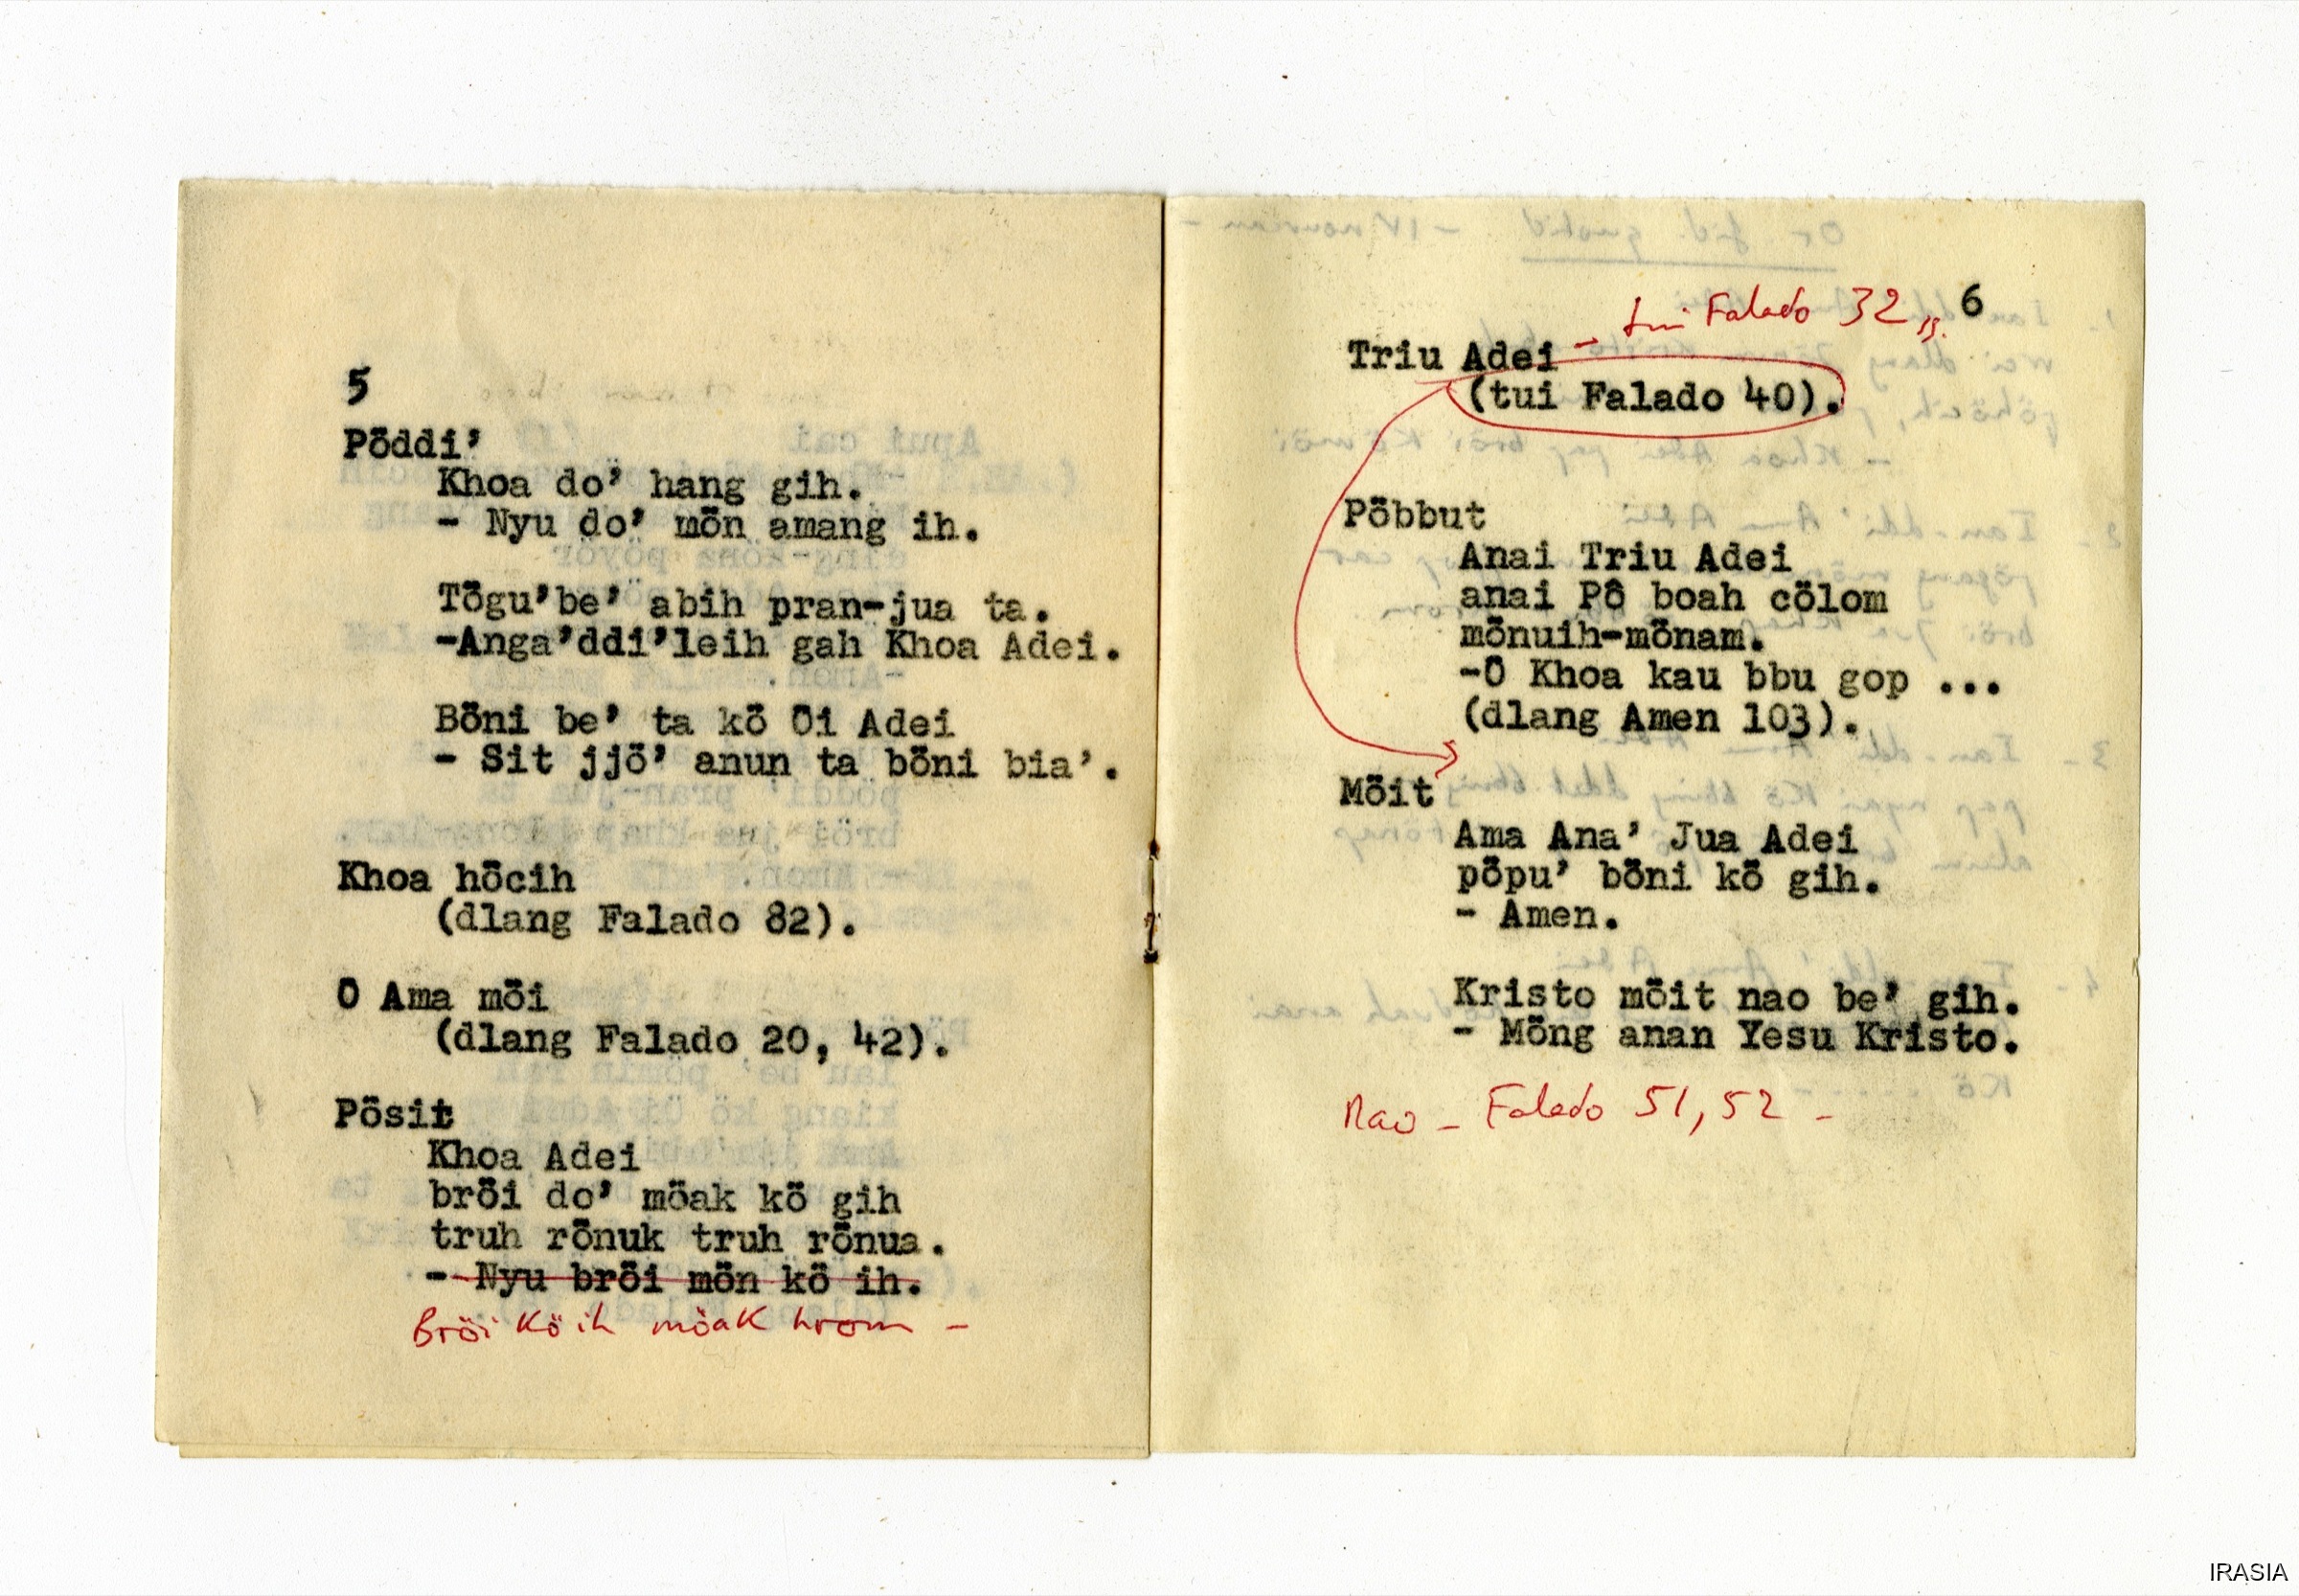 5
Pöddi’
Khoa do’ hang gih.
- Nyu do’ mön amang ih.
Tögu’be’ abih pran-jua ta.
-Anga’ddi’leih gah Khoa Adei.
Böni be’ ta kö Öi Adei
- Sit jjö’ anun ta böni bia’.
Khoa höcih
(dlang Falado 82).
Ö Ama möi
(dlang Falado 20, 42).
Pösit
Khoa Adei
bröi do’ möak kö gih
truh rönuk truh rönua.
- Nyu bröi mön kö ih.
Bröi Kö ih möak hrom -
6
tui Falado 32
Triu Adei
(tui Falado 40).
Pöbbut
Anai Triu Adei
anai Pô boah cölom
mönuih-mönam.
-Ö Khoa kau bbu gop ...
(dlang Amen 103).
Möit
Ama Ana’ Jua Adei
pöpu’ böni kö gih.
- Amen.
Kristo möit nao be’ gih.
- Möng anan Yesu Kristo.
Nao - Falado 51, 52 -
IRASIA